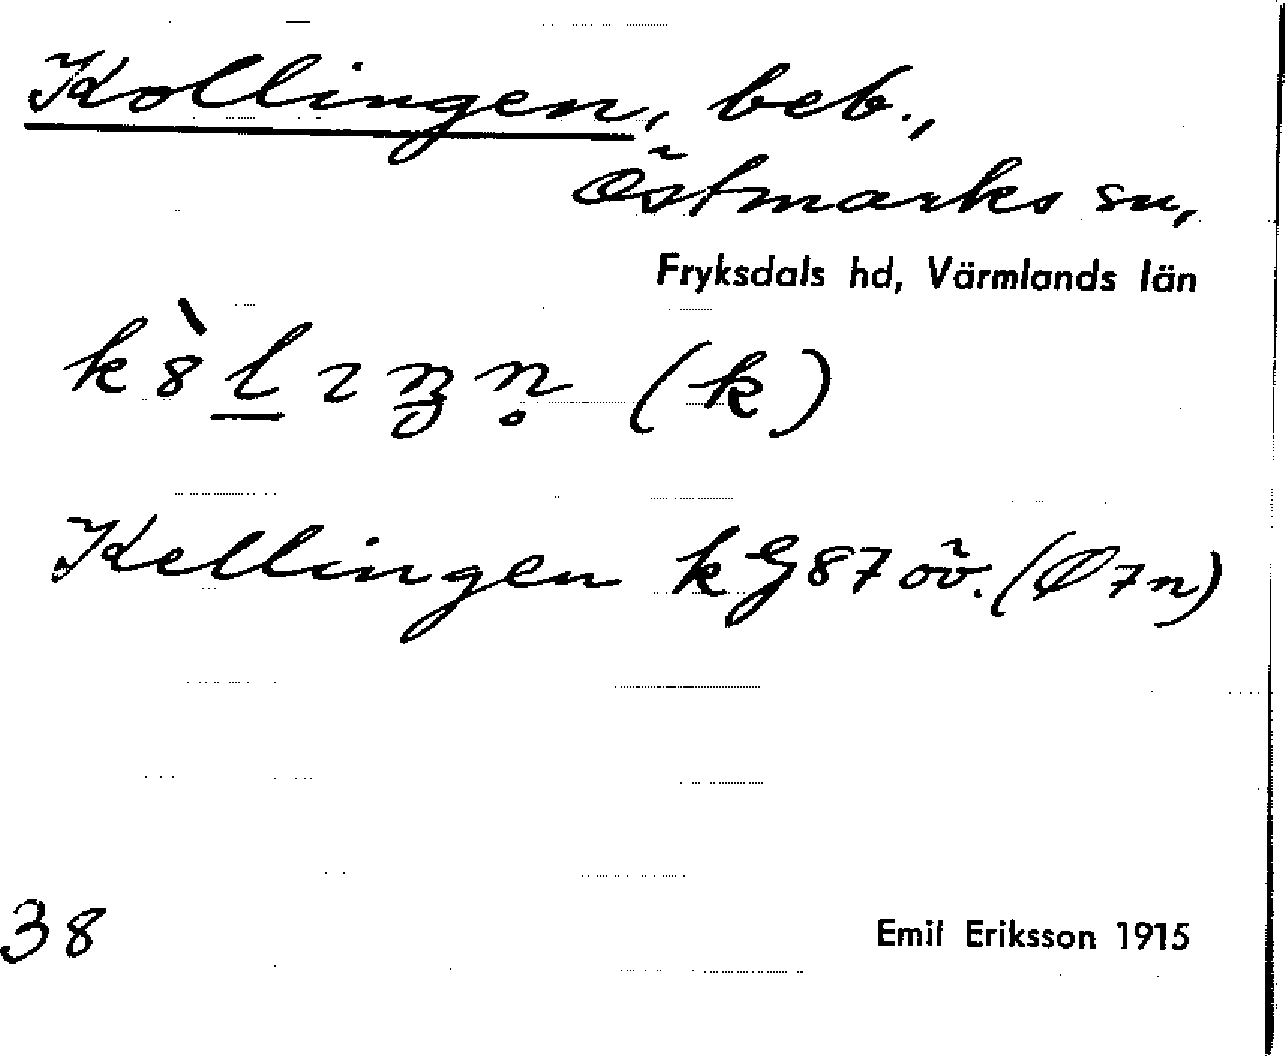 Kollingen, beb.,
Östmarks sn,
Fryksdals hd, Värmlands län
(k)
Kellingen kG87 öv. (Ø7n)
38
Emil Eriksson 1915